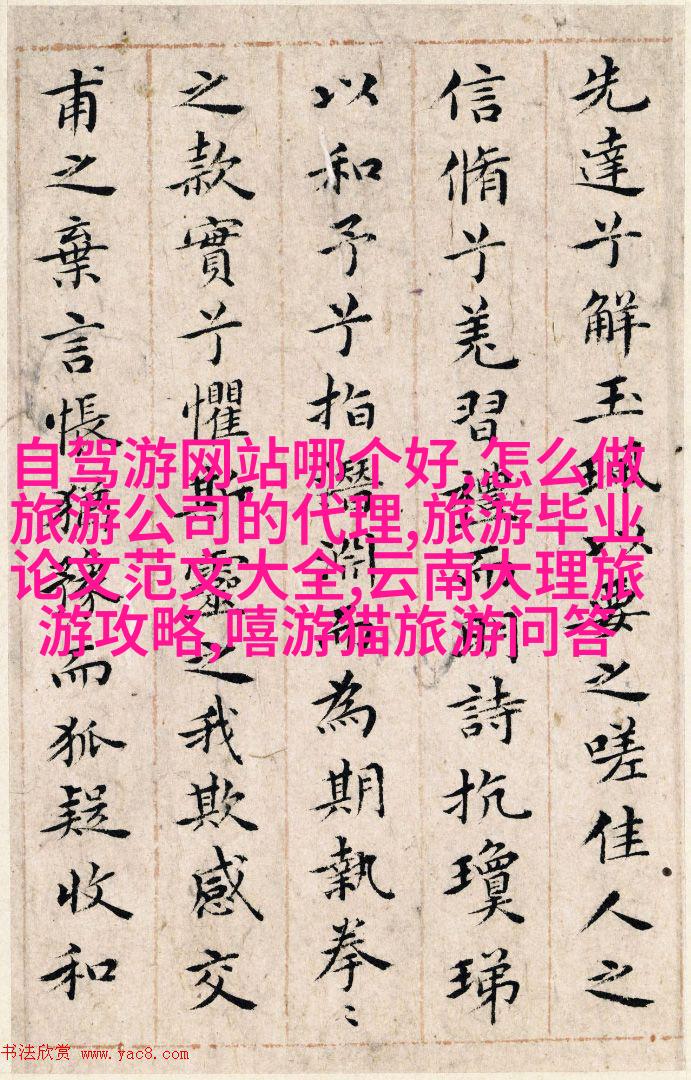 先達兮解玉珮以要之嗟佳人之
信脩兮羌習禮而明詩抗瓊珶
以和予兮指潛淵而為期執拳〻
之款實兮懼斯靈之我欺感交
甫之棄言悵猶豫而狐疑收和
自驾游网站哪个好,怎么做
旅游公司的代理,旅游毕业
论文范文大全,云南大理旅
游攻略,嘻游猫旅游问答
书法欣赏 www.yac8.com